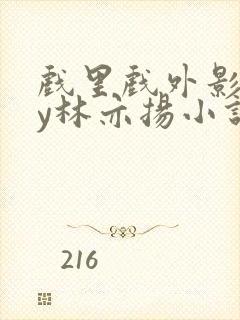 戲里戲外影
y林亦揚小說
216